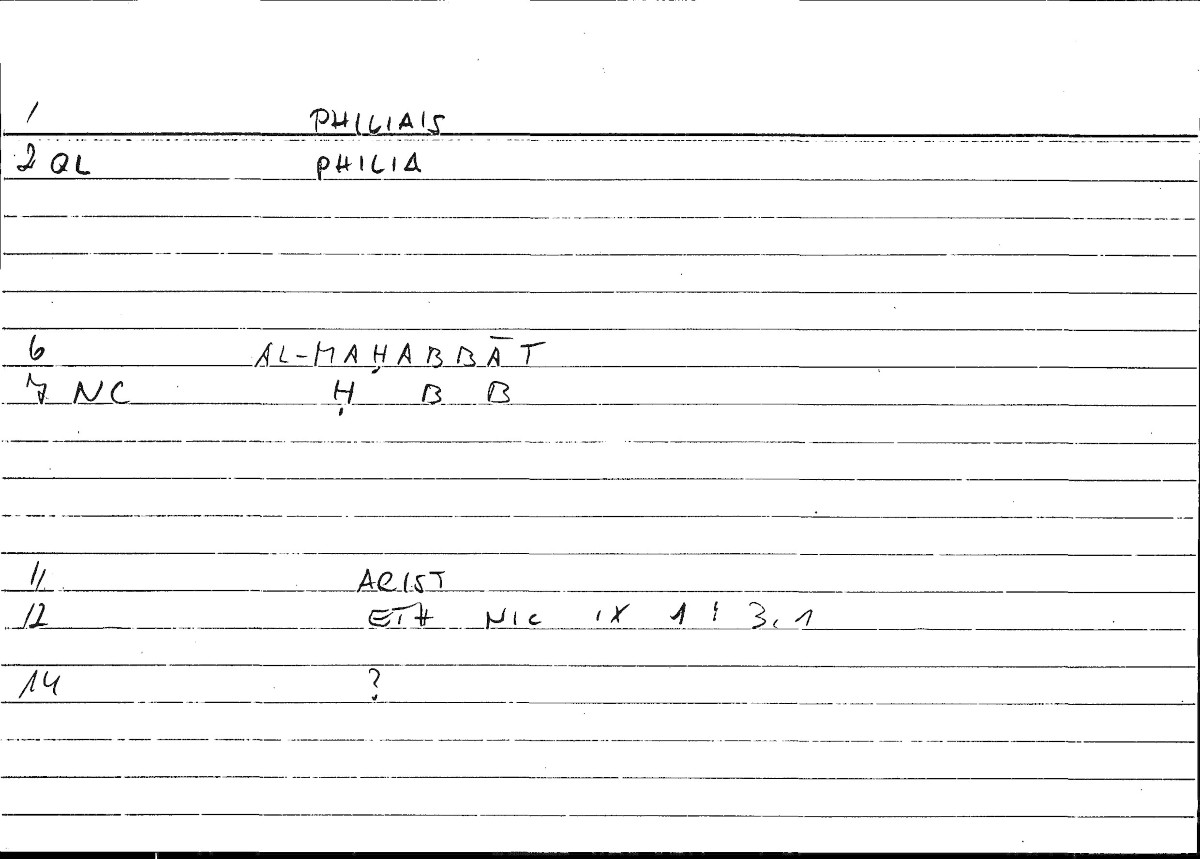 1 PHILIAIS
2 QL PHILIA
6 AL-MAḤABBĀT
7 NC Ḥ B B
11 ARIST
12 ETH NIC IX 1 ! 3,1
14 ?